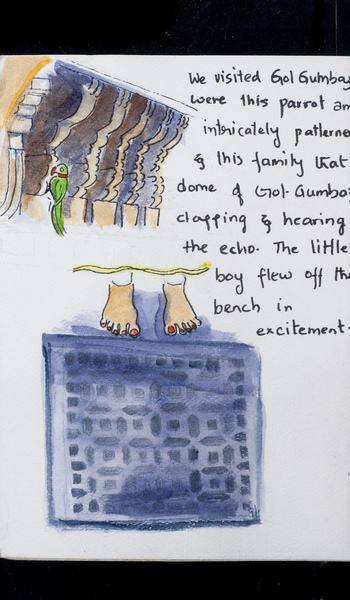 We visited Gol Gumbaz
were this parrot an
intricately patterne
& this family that
dome of Gol-Gumbaz
clapping & hearing
the echo. The little
boy flew off th
bench in
excitement.